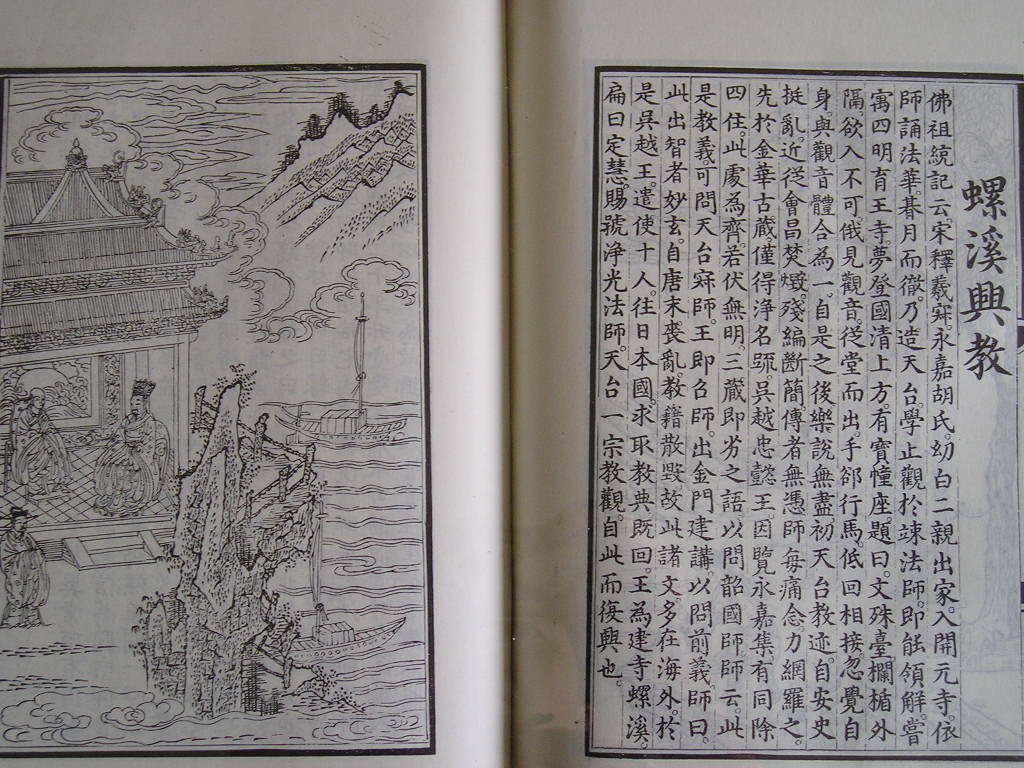 螺溪興教
佛祖統記云宋釋羲寂永嘉胡氏幼白二親出家入開元寺依
師誦法華朞月而徹乃造天台學止觀於竦法師即能領解嘗
寓四明育王寺夢登國清上方有寶幢座題曰文殊臺欄楯外
隔欲入不可俄見觀音從堂而出手卻行馬低回相接忽覺自
身與觀音體合為一自是之後樂說無盡初天台教迹自安史
挺亂近從會昌焚燬殘編斷簡傳者無憑師每痛念力網羅之
先於金華古藏僅得淨名䟽吳越忠懿王因覽永嘉集有同除
四住此處為齊若伏無明三藏即劣之語以問韶國師師云此
是教義可問天台寂師王即召師出金門建講以問前義師曰
此出智者妙玄自唐末喪亂教籍散毀故此諸文多在海外於
是吳越王遣使十人往日本國求取教典既回王為建寺螺溪
扁曰定慧賜號淨光法師天台一宗教觀自此而復興也